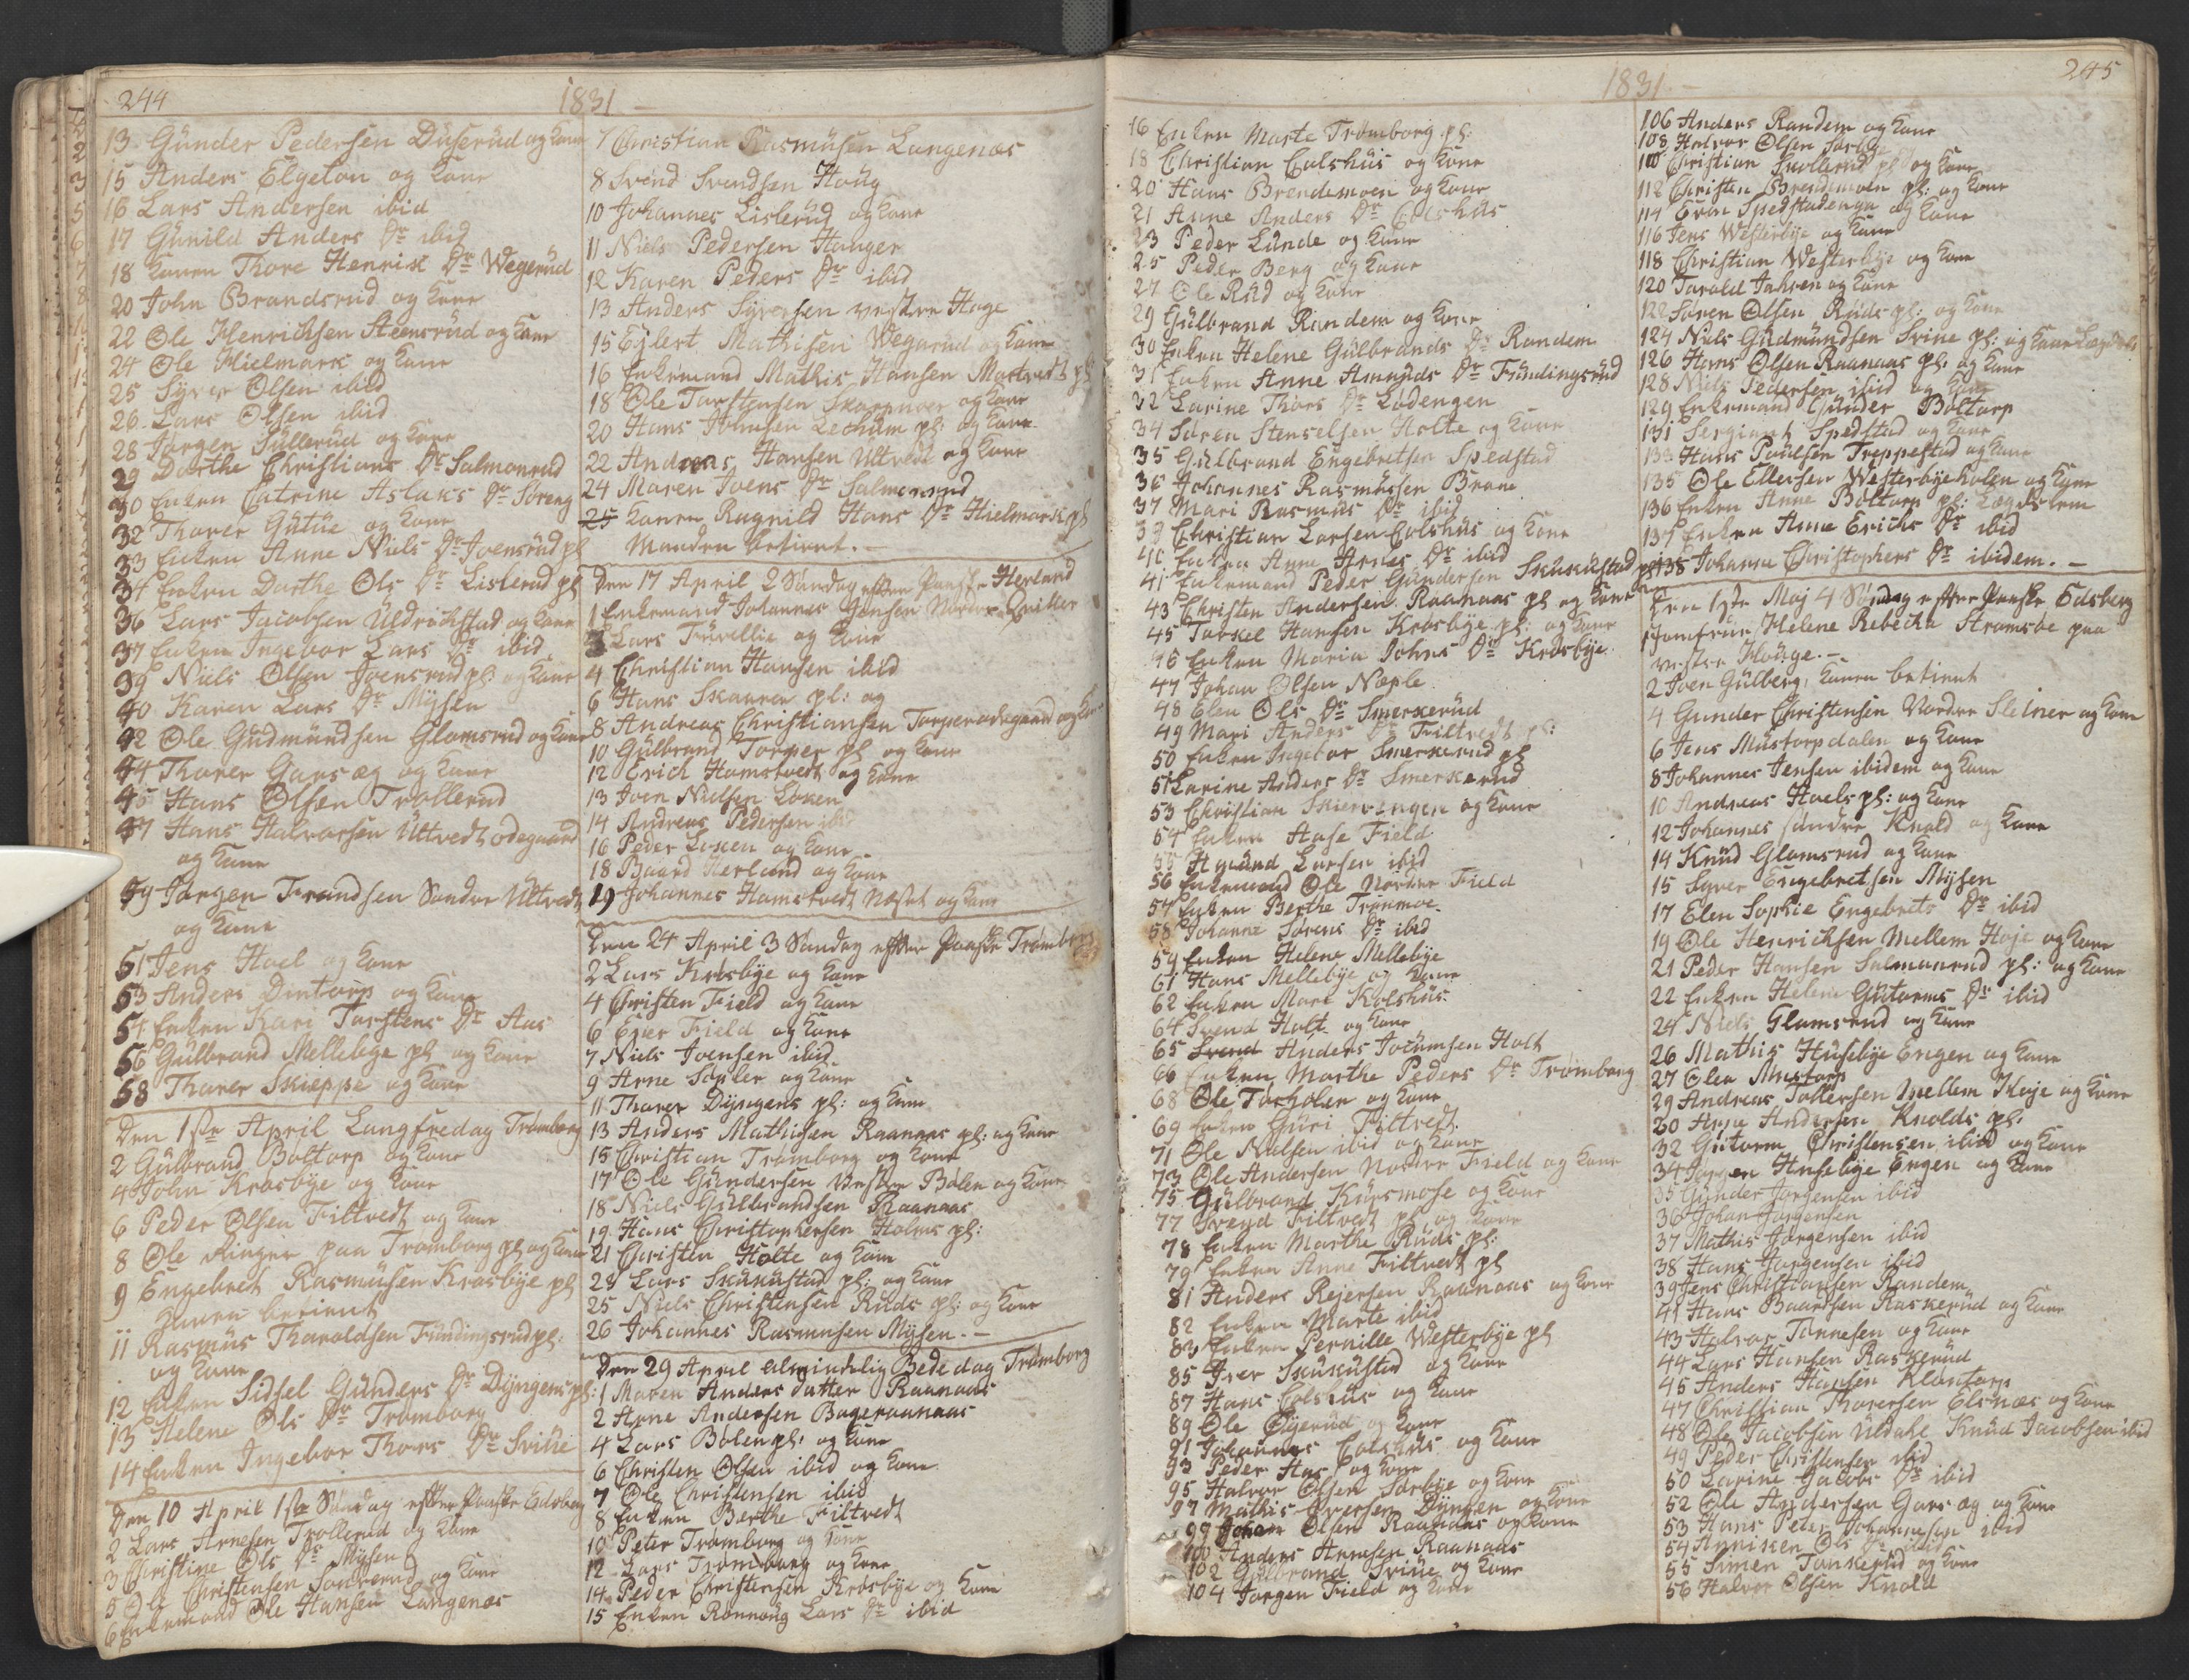 244
1831
13 Gunder Pedersen Duserud og kone
15 Anders Elgeton og kone
16 Lars Andersen ibid
17 Gunild Anders Dr ibid
18 konen Thore Henrik Dr Wegerud
20 John Brandsrud og kone
22 Ole Henrichsen Steensrud og kone
24 Ole Hielmark og kone
25 Syver Olsen ibid
26 Lars Olsen ibid
28 Jørgen Sullerud og kone
29 Dorthe Christians Dr Salmonrud
30 Enken Catrine Aslaks Dr Søreng
32 Thorer Gutue og kone
33 Enken Anne Niels Dr Joensrud pl
34 Enken Dorthe Ols Dr Lislerud pl
36 Lars Jacobsen Uldrichstad og kone
37 Enken Ingebor Lars Dr ibid
39 Niels Olsen Joensrud pl: og kone
40 Karen Lars Dr Mysen
42 Ole Gudmundsen Glomsrud og kone
44 Thorer Garsæg og kone
45 Hans Olsen Trollerud
47 Hans Halvorsen Ultvedt ødegaard
og kone
49 Jørgen Frandsen Søndre Ultvedt
og kone
51 Jens Hoel og kone
53 Anders Dintorp og kone
54 Enken Kari Torstens Dr Aas
56 Gulbrand Mellebye pl og kone
58 Thorer Skieppe og kone
Den 1ste April Langfredag Trømborg
2 Gulbrand Boltorp og kone
4 John Krosbye og kone
6 Peder Olsen Filtvedt og kone
8 Ole Ringer paa Trømborg pl og kone
9 Engebret Rasmusen Krosbye pl
konen betient
11 Rasmus Tharaldsen Fundingsrud pl:
og kone
12 Enken Sidsel Gunders Dr Dyngens pl:
13 Helene Ols Dr Trømborg
14 Enken Ingebor Thors Dr Sviue
Den 10 April 1ste Søndag efter Paaske Edsberg
2 Lars Arnesen Trollerud og kone
3 Christine Ols Dr Mysen
5 Ole Christensen Sønrerud og kone
6 Enkemand Ole Hansen Langenæs
7 Christian Rasmusen Langenæs
8 Svend Svendsen Houg
10 Johannes Lislerud og kone
11 Niels Pedersen Hanger
12 Karen Peders Dr ibid
13 Anders Syversen vestre Hage
15 Eylert Mathisen Wegerud og kone
16 Enkemand Mathis Hansen Mortvedt pl
18 Ole Torstensen Skarpnoer og kone
20 Hans Johnsen Lechum pl: og kone
22 Andreas Hansen Ultvedt og kone
24 Maren Joens Dr Salmonrud
25 konen Ragnild Hans Dr Hielmark pl
Manden betient.
Den 17 April 2 Søndag efter Paaske Herland
1 Enkemand Johannes Jensen Nordre Qviller
3 Lars Furellie og kone
4 Christian Hansen ibid
6 Hans Skaaren pl: og
8 Andreas Christiansen Torper ødegaard og kone
10 Gulbrand Torper pl og kone
12 Erich Homstvedt og kone
13 Joen Nielsen Løken
14 Andreas Pedersen ibid
16 Peder Løken og kone
18 Baard Herland og kone
19 Johannes Hamstvedt Næset og kone
Den 24 April 3 Søndag efter Paaske Trømborg
2 Lars Krosbye og kone
4 Christen Field og kone
6 Eier Field og kone
7 Niels Joensen ibid
9 Arne Søpler og kone
11 Thorer Dyngens pl: og kone
13 Anders Mathisen Raanaas pl: og kone
15 Christian Trømborg og kone
17 Ole Gundersen Vestre Bølen og kone
18 Niels Gulbrandsen Raanaas
19 Hans Christophersen Holms pl:
21 Christen Holte og kone
23 Lars Skukustad pl: og kone
25 Niels Christensen Ruds pl: og kone
26 Johannes Rasmusen Mysen.
Den 29 April almindelig Bededag Trømborg
1 Maren Anders datter Raanaas
2 Arne Andersen Bageraanaas
4 Lars Bølen pl: og kone
6 Christen Olsen ibid og kone
7 Ole Christensen ibid
8 Enken Berthe Filtvedt
10 Peter Trømborg og kone
12 Lars Trømborg og kone
14 Peder Christensen Krosbye og kone
15 Enken Rønnoug Lars Dr ibid
1831
245
16 Enken Marte Trømborg pl:
18 Christian Colshus og kone
20 Hans Brendemoen og kone
21 Anne Anders Dr Colshus
23 Peder Lunde og kone
25 Peder Berg og kone
27 Ole Rud og kone
29 Gulbrand Randem og kone
30 Enken Helene Gulbrands Dr Randem
31 Enken Anne Amunds Dr Fundingsrud
32 Larine Thors Dr Lødengen
34 Søren Stenselsen Holte og kone
35 Gulbrand Engebretsen Spedstad
36 Johannes Rasmusen Brane
37 Mari Rasmus Dr ibid
39 Christian Larsen Colshus og kone
40 Enken Anne Arnes Dr ibid
41 Enkemand Peder Gundersen Skukustad pl
43 Christen Andersen Raanaas pl og kone
45 Torkel Hansen Krosbye pl: og kone
46 Enken Maria Johns Dr Krosbye
47 Johan Olsen Næple
48 Elen Ols Dr Smerkerud
49 Mari Anders Dr Filtvedt pl:
50 Enken Ingebor Smerkerud pl
51 Larine Anders Dr Smerkerud
53 Christian Skiervengen og kone
54 Enken Aase Field
55 Amund Larsen ibid
56 Enkemand Ole Nordre Field
57 Enken Berthe Trønmoe
58 Johanne Sørens Dr ibid
59 Enken Helene Mellebye
61 Hans Mellebye og kone
62 Enken Mari Kolshus
64 Svend Holt og kone
65 Svend Anders Jocumsen Holt
66 Enken Marthe Peders Dr Trømborg
68 Ole Torholen og kone
69 Enken Guri Filtvedt
71 Ole Nielsen ibid og kone
73 Ole Andersen Nordre Field og kone
75 Gulbrand Kursmose og kone
77 Svend Filtvedt pl og kone
78 Enken Marthe Ruds pl:
79 Enken Anne Filtvedt pl
81 Anders Rejersen Raanaas og kone
82 Enken Marte ibid
83 Enken Pernille Westerbye pl
85 Iver Skukustad og kone
87 Hans Colshus og kone
89 Ole Øyerud og kone
91 Johannes Colshus og kone
93 Peder Aas og kone
95 Halvor Olsen Sørbye og kone
97 Mathis Iversen Dyngen og kone
99 Johan Olsen Raanaas og kone
100 Anders Arnesen Raanaas
102 Gulbrand Sviue og kone
104 Jørgen Field og kone
106 Anders Randem og kone
108 Halvor Olsen Sørbye
110 Christian Skollerud pl og kone
112 Christen Brendemoen pl: og kone
114 Even Spedstadenga og kone
116 Jens Westerbye og kone
118 Christian Westerbye og kone
120 Tarald Jahren og kone
122 Søren Olsen Ruds pl: og kone
124 Niels Gudmundsen Svine pl: og kone
126 Hans Olsen Raanaas pl: og kone
128 Niels Pedersen ibid og kone
129 Enkemand Gunder Boltorp
131 Sergiant Spedstad og kone
133 Hans Poulsen Treppestad og kone
135 Ole Ellersen Westerbyeholen og kone
136 Enken Anne Boltorp pl: Lægdslem
137 Enken Anne Erichs Dr ibid
138 Johanna Christophers Dr ibidem.
Den 1ste Maj 4 Søndag efter Paaske Edsberg
1 Jomfrue Helene Rebecka Strømsøe paa
vestre Houge.
2 Joen Gulberg, konen betient
4 Gunder Christensen Nordre Sletner og kone
6 Jens Mustorpdalen og kone
8 Johannes Jensen ibidem og kone
10 Andreas Hoels pl: og kone
12 Johannes søndre Knold og kone
14 Knud Glomsrud og kone
15 Syver Engebretsen Mysen
17 Elen Sophie Engebrets Dr ibid
19 Ole Henrichsen Mellem Hoje og kone
21 Peder Hansen Salmonrud pl: og kone
22 Enken Helene Gutorms Dr ibid
24 Niels Glomsrud og kone
26 Mathis Husebye Engen og kone
27 Olea Mustorp
29 Andreas Tollersen Mellem Hoje og kone
30 Arne Andersen Knolds pl:
32 Gutorm Christensen ibid og kone
34 Jørgen Husebye Engen og kone
35 Gunder Jørgensen ibid
36 Johan Jørgensen
37 Mathis Jørgensen ibid
38 Hans Jørgensen ibid
39 Jens Christiansen Randem
41 Hans Baardsen Raskerud og kone
43 Halvor Tønnesen og kone
44 Lars Hansen Raskerud
45 Anders Hansen Klontorp
47 Christian Thoresen Elsnæs og kone
48 Ole Jacobsen Uldahl Knud Jacobsen ibid
49 Peder Christensen ibid
50 Larine Jacobs Dr ibid
52 Ole Andersen Garsæg og kone
53 Hans Peter Johannesen ibid
54 Anniken Ols Dr ibid
55 Simen Tonkerud og kone
56 Halvor Olsen Knold